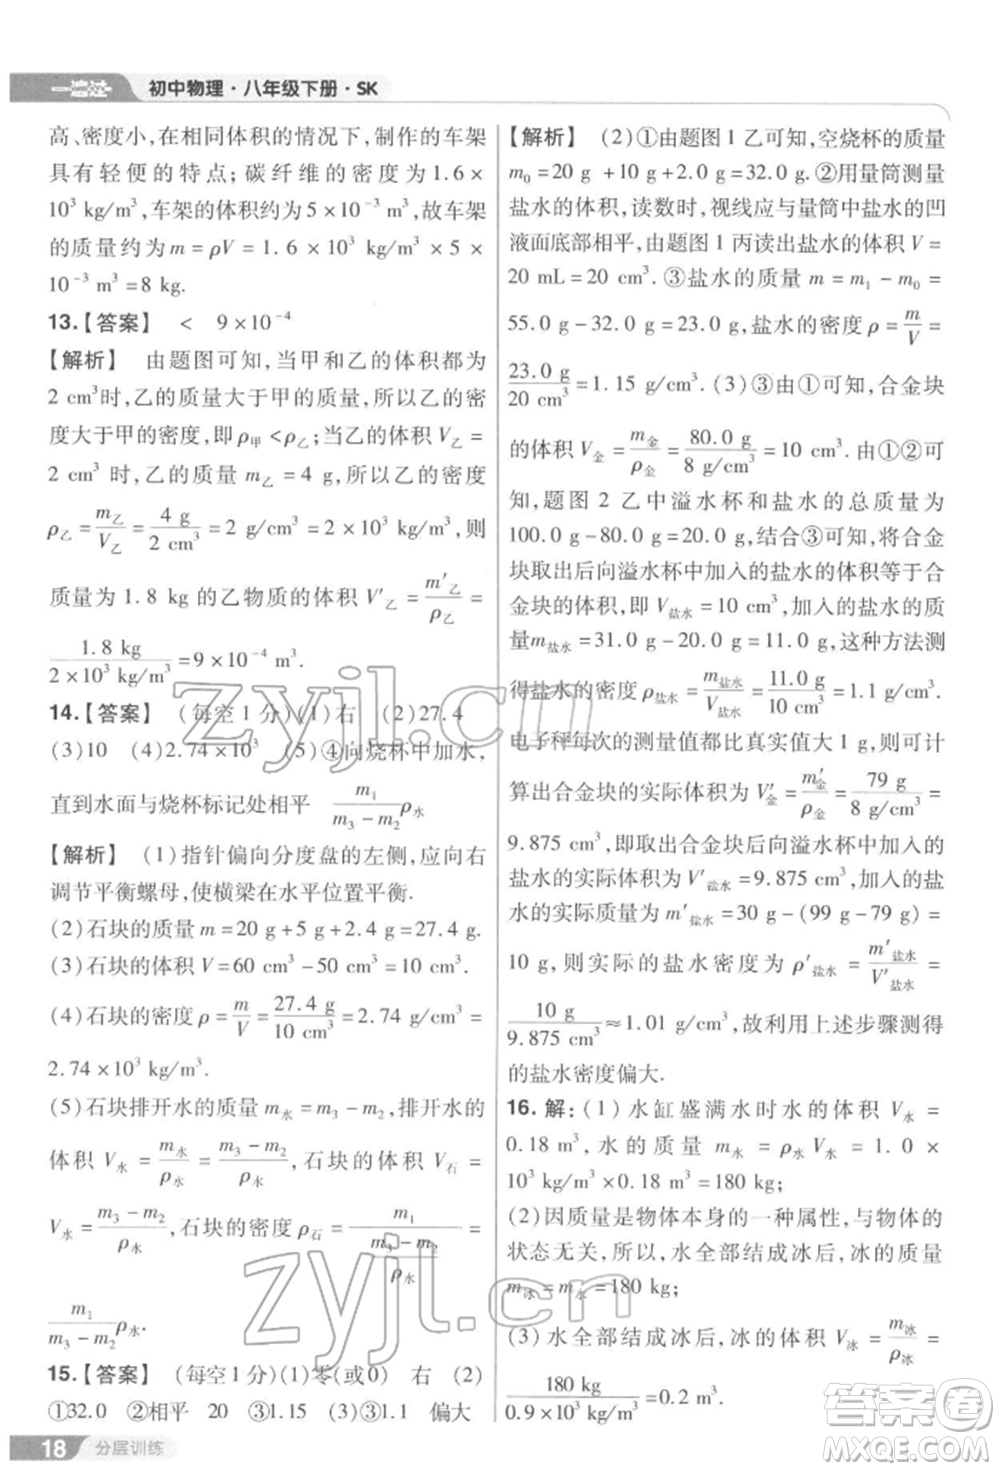 一遍过 初中物理·八年级下册·SK
高、密度小,在相同体积的情况下,制作的车架
具有轻便的特点;碳纤维的密度为 1.6 ×
10³ kg/m³,车架的体积约为 5 ×10⁻³ m³,故车架
的质量约为 m = ρV = 1. 6 ×10³ kg/m³ × 5 ×
10⁻³ m³ =8 kg.
13.【答案】 < 9×10⁻⁴
【解析】 由题图可知,当甲和乙的体积都为
2 cm³时,乙的质量大于甲的质量,所以乙的密
度大于甲的密度,即ρ甲<ρ乙;当乙的体积 V乙 =
2 cm³ 时,乙的质量 m乙 = 4 g,所以乙的密度
ρ乙 = m乙/V乙 = 4 g/2 cm³ = 2 g/cm³ = 2 × 10³ kg/m³,则
质量为 1.8 kg 的乙物质的体积 V′乙 = m′乙/ρ乙 =
1.8 kg/2×10³ kg/m³ = 9×10⁻⁴ m³.
14.【答案】 (每空 1 分)(1)右 (2)27.4
(3)10 (4)2.74×10³ (5)④向烧杯中加水,
直到水面与烧杯标记处相平 m₁/(m₃-m₂) ρ水
【解析】 (1)指针偏向分度盘的左侧,应向右
调节平衡螺母,使横梁在水平位置平衡.
(2)石块的质量 m=20 g+5 g+2.4 g=27.4 g.
(3)石块的体积 V=60 cm³-50 cm³=10 cm³.
(4)石块的密度 ρ = m/V = 27.4 g/10 cm³ = 2.74 g/cm³ =
2.74×10³ kg/m³.
(5)石块排开水的质量 m水 = m₃-m₂,排开水的
体积 V水 = m水/ρ水 = (m₃-m₂)/ρ水,石块的体积 V石 =
V水 = (m₃-m₂)/ρ水,石块的密度 ρ石 = m₁/((m₃-m₂)/ρ水) =
m₁/(m₃-m₂) ρ水.
15.【答案】 (每空 1 分)(1)零(或0) 右 (2)
①32.0 ②相平 20 ③1.15 (3)③1.1 偏大
【解析】 (2)①由题图 1 乙可知,空烧杯的质量
m₀ =20 g +10 g+2.0 g=32.0 g. ②用量筒测量
盐水的体积,读数时,视线应与量筒中盐水的凹
液面底部相平,由题图 1 丙读出盐水的体积 V =
20 mL=20 cm³;③盐水的质量 m = m₁ -m₀ =
55.0 g-32.0 g=23.0 g,盐水的密度 ρ = m/V =
23.0 g/20 cm³ =1.15 g/cm³. (3)③由①可知,合金块
的体积 V金 = m金/ρ金 = 80.0 g/8 g/cm³ =10 cm³,由①②可
知,题图 2 乙中溢水杯和盐水的总质量为
100.0 g-80.0 g=20.0 g,结合③可知,将合金
块取出后向溢水杯中加入的盐水的体积等于合
金块的体积,即 V盐水 = 10 cm³,加入的盐水的质
量m盐水 =31.0 g-20.0 g=11.0 g,这种方法测
得盐水的密度 ρ盐水 = m盐水/V盐水 = 11.0 g/10 cm³ =1.1 g/cm³.
电子秤每次的测量值都比真实值大 1 g,则可计
算出合金块的实际体积为 V′金 = m′金/ρ金 = 79 g/8 g/cm³ =
9.875 cm³,即取出合金块后向溢水杯中加入的
盐水的实际体积为 V′盐水 =9.875 cm³,加入的盐
水的实际质量为 m′盐水 =30 g-(99 g-79 g) =
10 g,则实际的盐水密度为 ρ′盐水 = m′盐水/V′盐水 =
10 g/9.875 cm³ ≈1.01 g/cm³,故利用上述步骤测得
的盐水密度偏大.
16.解:(1)水缸盛满水时水的体积 V水 =
0.18 m³,水的质量 m水 = ρ水 V水 = 1. 0 ×
10³ kg/m³×0.18 m³=180 kg;
(2)因质量是物体本身的一种属性,与物体的
状态无关,所以,水全部结成冰后,冰的质量
m冰=m水=180 kg;
(3)水全部结成冰后,冰的体积 V冰 = m冰/ρ冰 =
180 kg/0.9×10³ kg/m³ =0.2 m³.
zyjl.cn
zyjl.cn
答案圈
MXQE.COM
18 分层训练